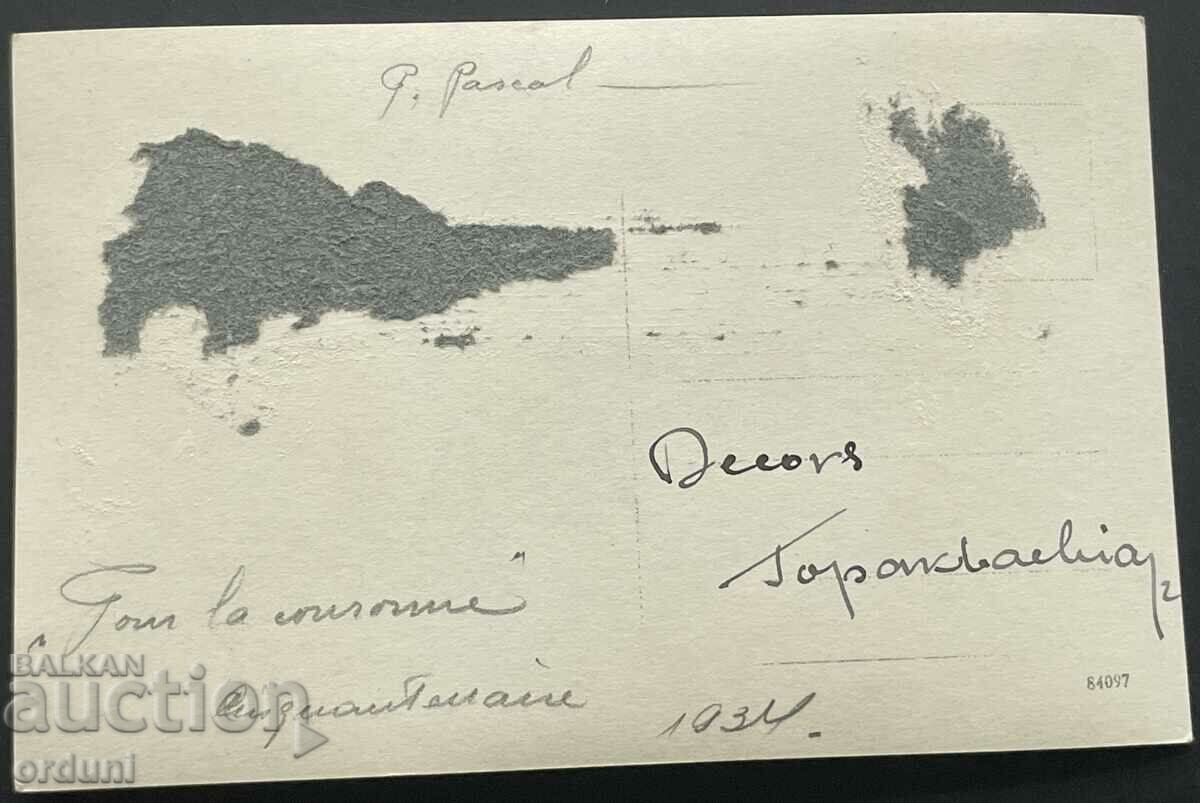 P. Pascal
Decors
"Pour la couronne"
Cinquantenaire
1934.
84097
BALKAN
auction
orduni